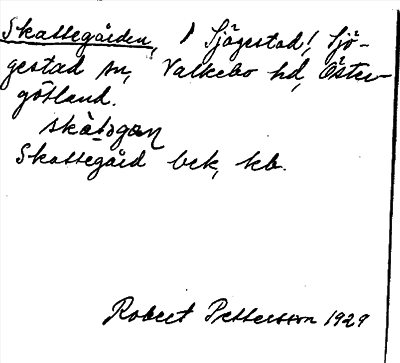 Skattegården, 1 Sjögestad, Sjö-
gestad sn, Valkebo hd, Öster-
götland.
skàtogan
Skattegård bek, kb.
Robert Pettersson 1929